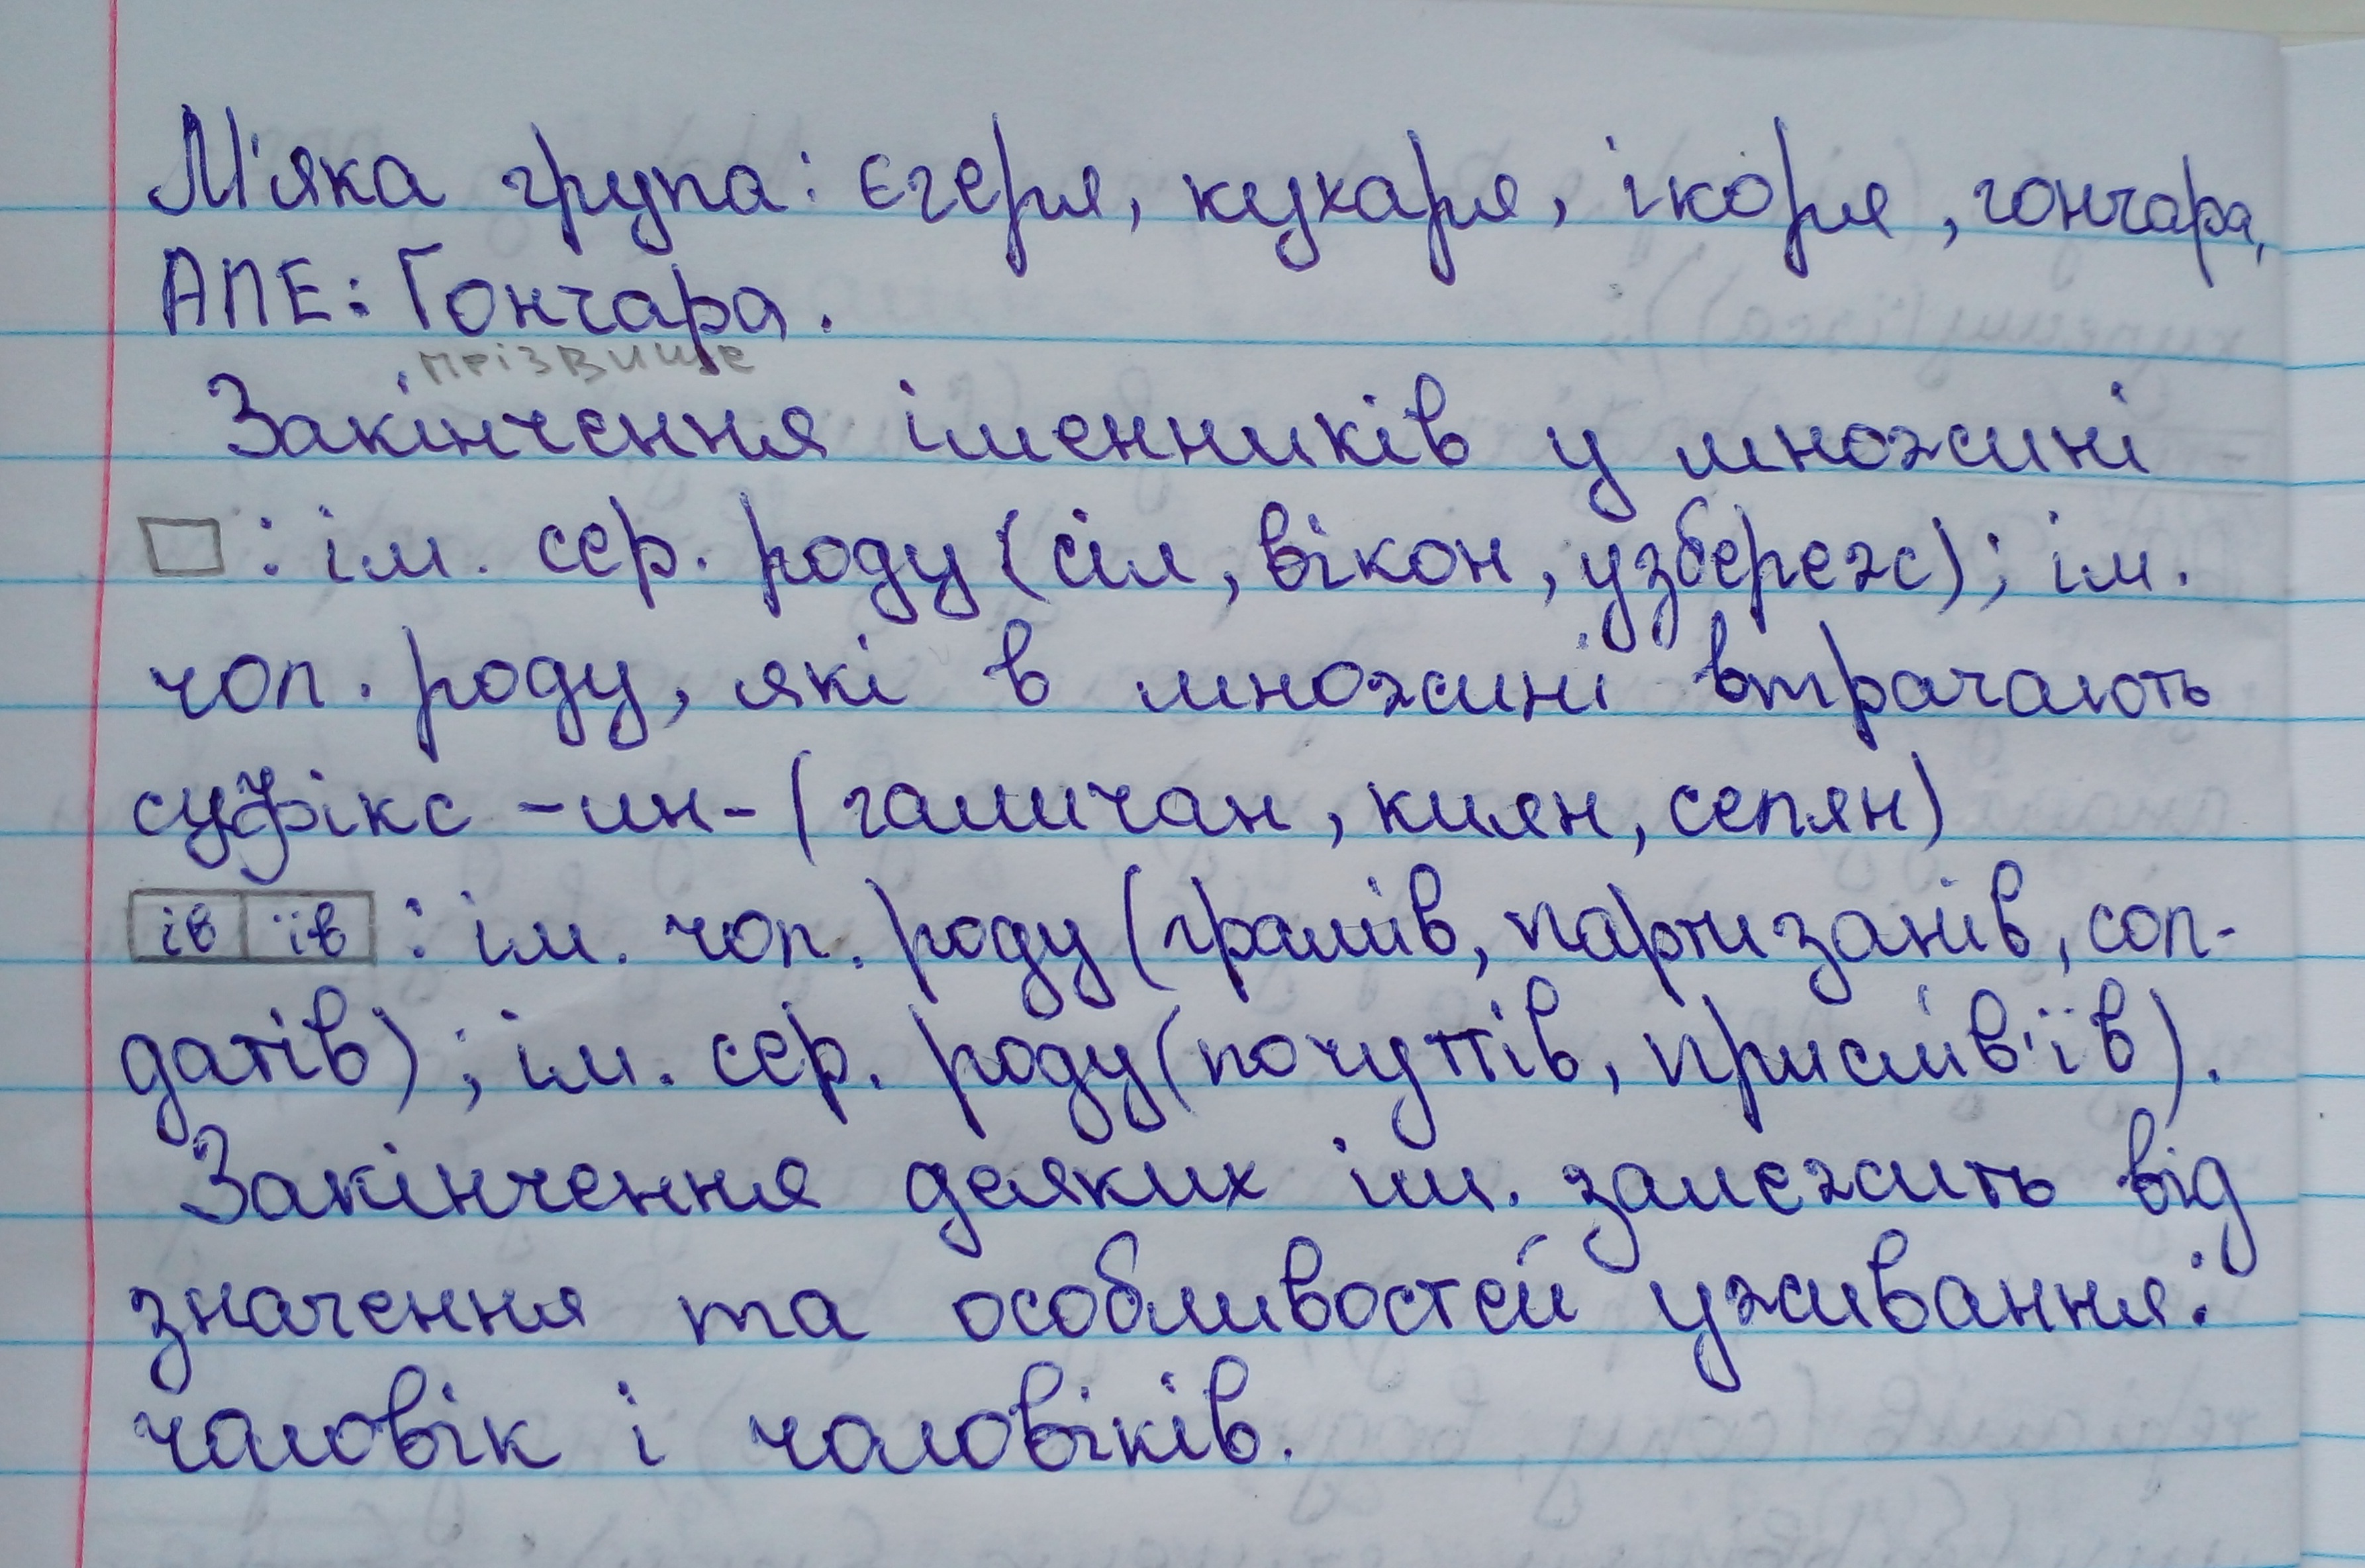 М'яка група: єгеря, кухаря, ікоря, гончара,
АЛЕ: Гончара.
прізвище
Закінчення іменників у множині
□ : ім. сер. роду (сіл, вікон, узбереж); ім.
чол. роду, які в множині втрачають
суфікс -ин- (галичан, киян, селян)
ів їв : ім. чол. роду (грамів, партизанів, сол-
датів); ім. сер. роду (почуттів, прислів'їв).
Закінчення деяких ім. залежить від
значення та особливостей уживання:
чоловік і чоловіків.